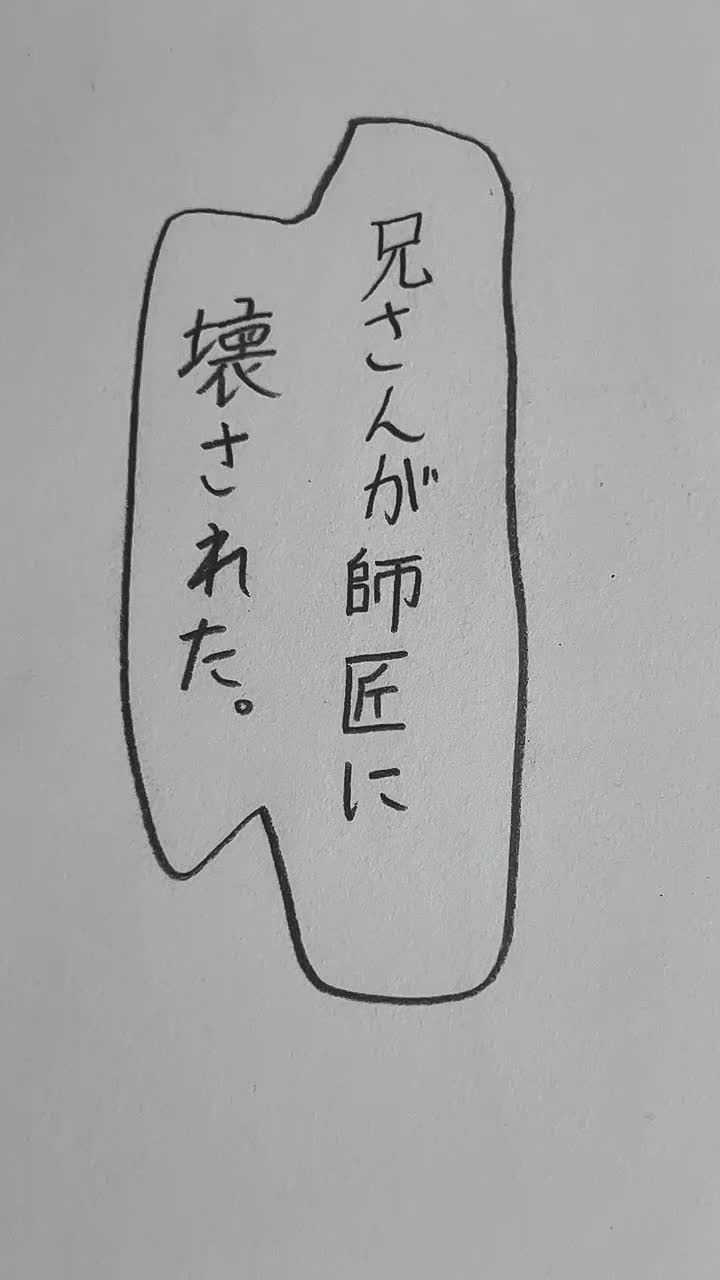 兄さんが師匠に
壊された。